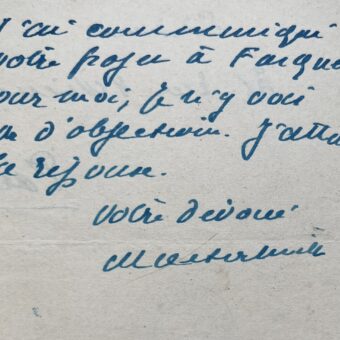 J'ai communiqué
votre projet à Fasque
pour moi, je n'y vois
pas d'objection. J'atte
sa réponse.
Votre dévoué